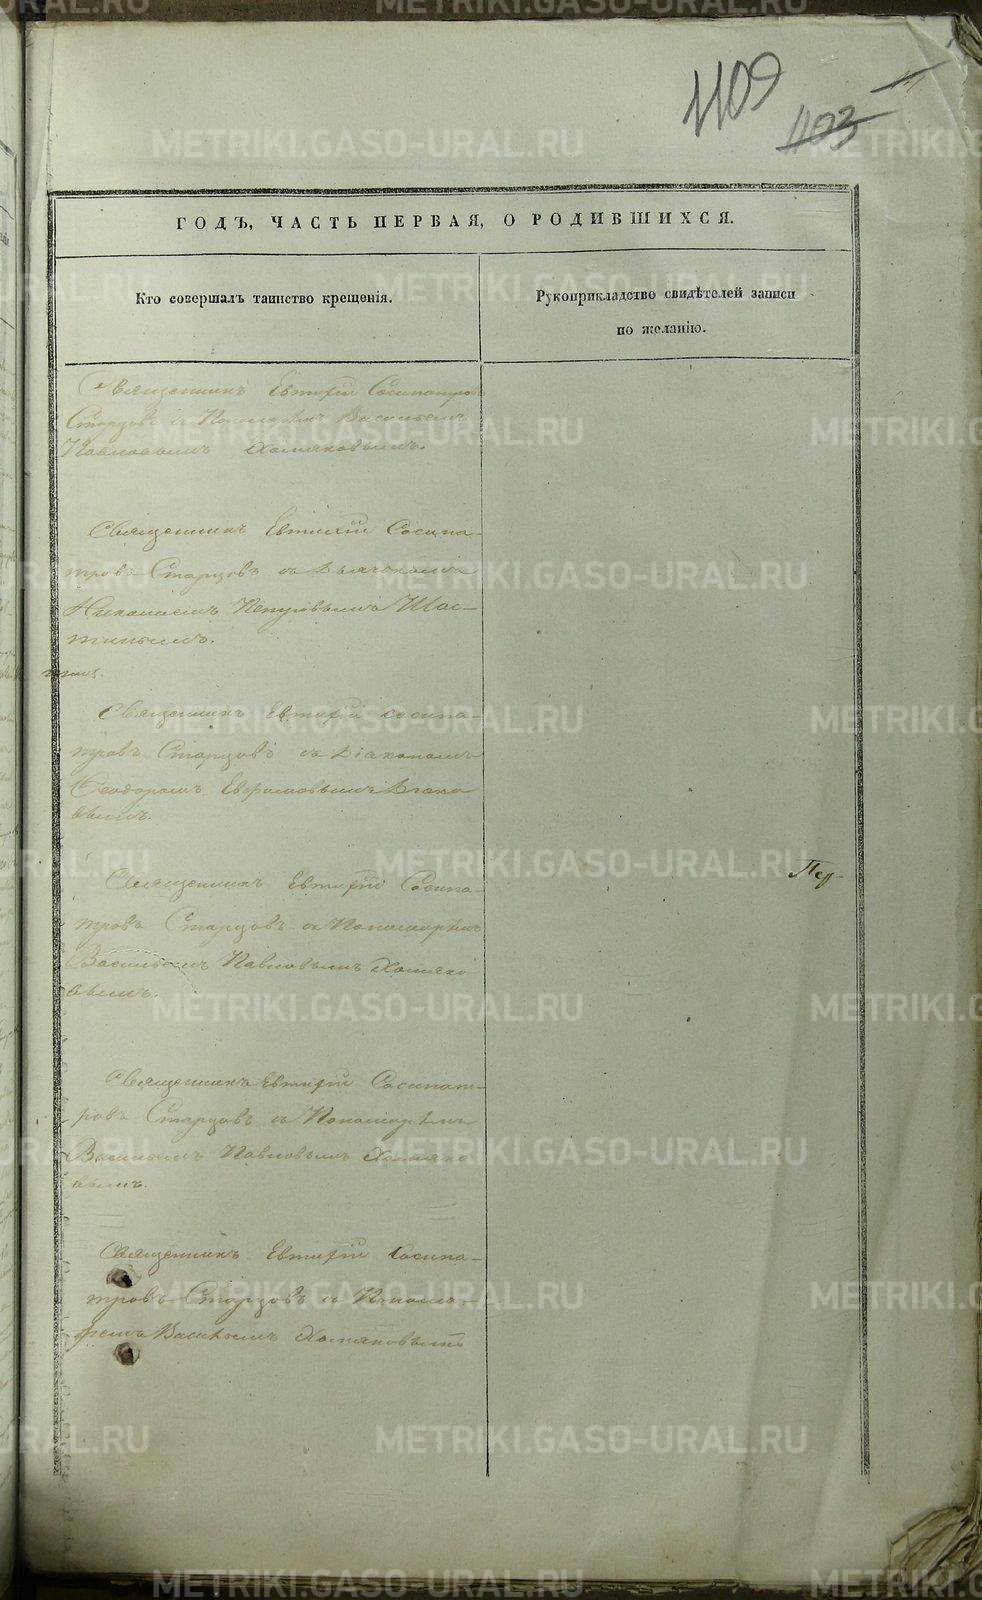 1109
1103
ГОДЪ, ЧАСТЬ ПЕРВАЯ, О РОДИВШИХСЯ.
Кто совершалъ таинство крещенія.
Рукоприкладство свидѣтелей записи
по желанію.
Священникъ Евтихій Сосипатровъ
Старцовъ съ Пономаремъ Васильемъ
Павловымъ Хомяковымъ.
Священникъ Евтихій Сосипа-
тровъ Старцовъ съ Дьячкомъ
Николаемъ Петровымъ Шас-
тинымъ.
Священникъ Евтихій Сосипа-
тровъ Старцовъ съ Діакономъ
Феодоромъ Евфимовымъ
вымъ.
Священникъ Евтихій Сосипа-
тровъ Старцовъ съ Пономарёмъ
Васильемъ Павловымъ Хомяко
вымъ.
Священникъ Евтихій Сосипат-
ровъ Старцовъ съ Пономарёмъ
Васильемъ Павловымъ Хомяко
вымъ.
Священникъ Евтихій Сосипа-
тровъ Старцовъ съ Понома-
ремъ Васильемъ Хомяковымъ
METRIKI.GASO-URAL.RU